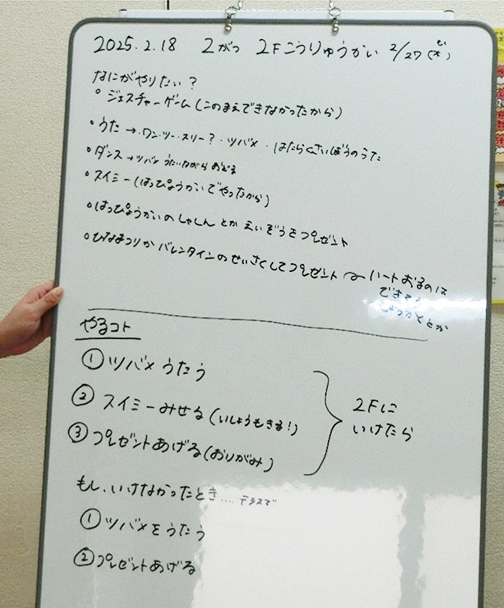 2025.2.18 2がつ 2Fこうりゅうかい 2/27(木)
もく
なにがやりたい?
・ジェスチャーゲーム(このまえできなかったから)
・うた→ワン・ツー・スリー?・ツバメ・はたらくさいぼうのうた
・ダンス→ツバメ うたいながらおどる
・スイミー(はっぴょうかいでやったから)
・はっぴょうかいのしゃしんとかえいぞうをプレゼント
・ひなまつりかバレンタインのせいさくしてプレゼント〜ハートおるのは
できそう
しかくとか
やるコト
①ツバメうたう
②スイミーみせる(いしょうもきる!)
③プレゼントあげる(おりがみ)
2Fに
いけたら
もし、いけなかったとき....テラスで
①ツバメをうたう
②プレゼントあげる